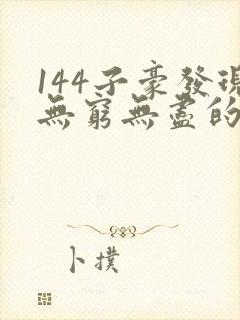 144子豪發現
無窮無盡的
卜撲